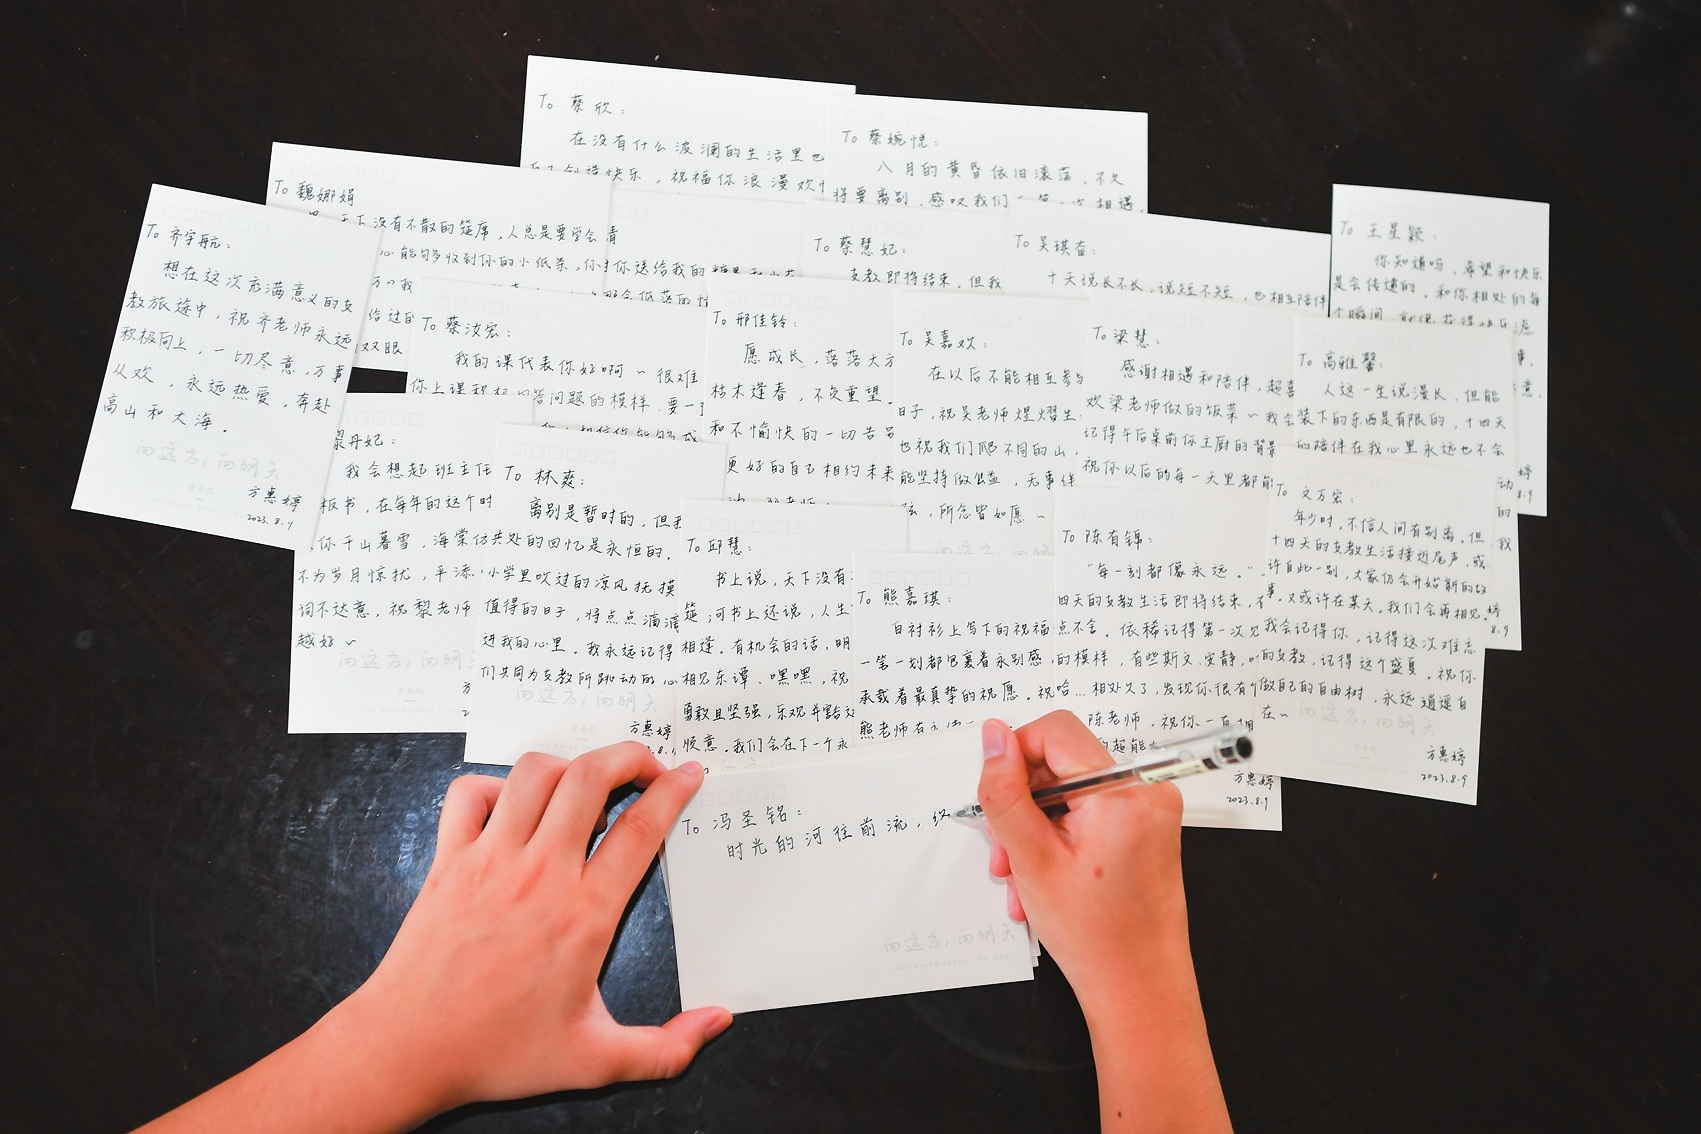 To 蔡欣：
在没有什么波澜的生活里也
创造快乐，祝福你浪漫欢
To 蔡婉悦：
八月的黄昏依旧滚落，不久
将要离别，感叹我们
相遇，
To 魏娜娟
天下没有不散的筵席，人总是要学会
心能句多收到你的小纸条，你
你送给我的
To 齐宇航：
想在这次充满意义的支
教旅途中，祝齐老师永远
积极向上，一切尽意，万事
从欢，永远热爱，奔赴
高山和大海。
向远方，向明天
方惠婷
2023.8.9
To 蔡慧妃：
支教即将结束，但我
To 吴琪奋：
十天说长不长，说短不短，也相互陪伴
To 王星颖：
你知道吗，希望和快乐
是会传递的，和你相处的每
个瞬间
To 蔡汝宏：
我的课代表你好啊～很难
你上课积极回答问题的模样，要一
To 邢佳铃：
愿成长，落落大方
枯木逢春，不负重望。
和不愉快的一切告别
更好的自己相约未来
To 吴嘉欢：
在以后不能相互参与
日子，祝吴老师熠熠生
也祝我们爬不同的山，
能坚持做公益，无事绊
弦，所念皆如愿～
To 梁慧：
感谢相遇和陪伴，超喜
欢梁老师做的饭菜～我会
记得午后桌前你主厨的背景
祝你以后的每一天里都能
To 高雅馨：
人这一生说漫长，但能
装下的东西是有限的，十四天
的陪伴在我心里永远也不会
丹妃：
我会想起班主任
板书，在每年的这个时
你千山暮雪，海棠仿
不为岁月惊扰，平添
词不达意，祝黎老师
越好～
To 林奕：
离别是暂时的，但
共处的回忆是永恒的。
小学里吹过的凉风抚摸
值得的日子，将点点滴滴
进我的心里。我永远记得
们共同为支教所跳动的心
方惠婷
To 邱慧：
书上说，天下没有
筵，可书上还说，人生
相逢。有机会的话，明
相见东谭，嘿嘿，祝
勇敢且坚强，乐观
顺意。我们会在下一个永
To 熊嘉琪：
白衬衫上写下的祝福
一笔一划都包裹着永别感
承载着最真挚的祝愿。祝
熊老师
To 陈有锦：
“每一刻都像永远。”
四天的支教生活即将结束，
点不舍。依稀记得第一次见
的模样，有些斯文、安静，
哈…相处久了，发现你很有
陈老师，祝你一直拥
的超能
方惠婷
2023.8.9
To 文万宏：
年少时，不信人间有别离。但
十四天的支教生活接近尾声，或
许自此一别，大家仍会开始新的故
事。又或许在某天，我们会再相见。
我会记得你，记得这次难忘
的支教，记得这个盛夏。祝你
做自己的自由树，永远逍遥自
在～
向远方，向明天
方惠婷
2023.8.9
To 冯圣铭：
时光的河往前流，终
向远方，向明天